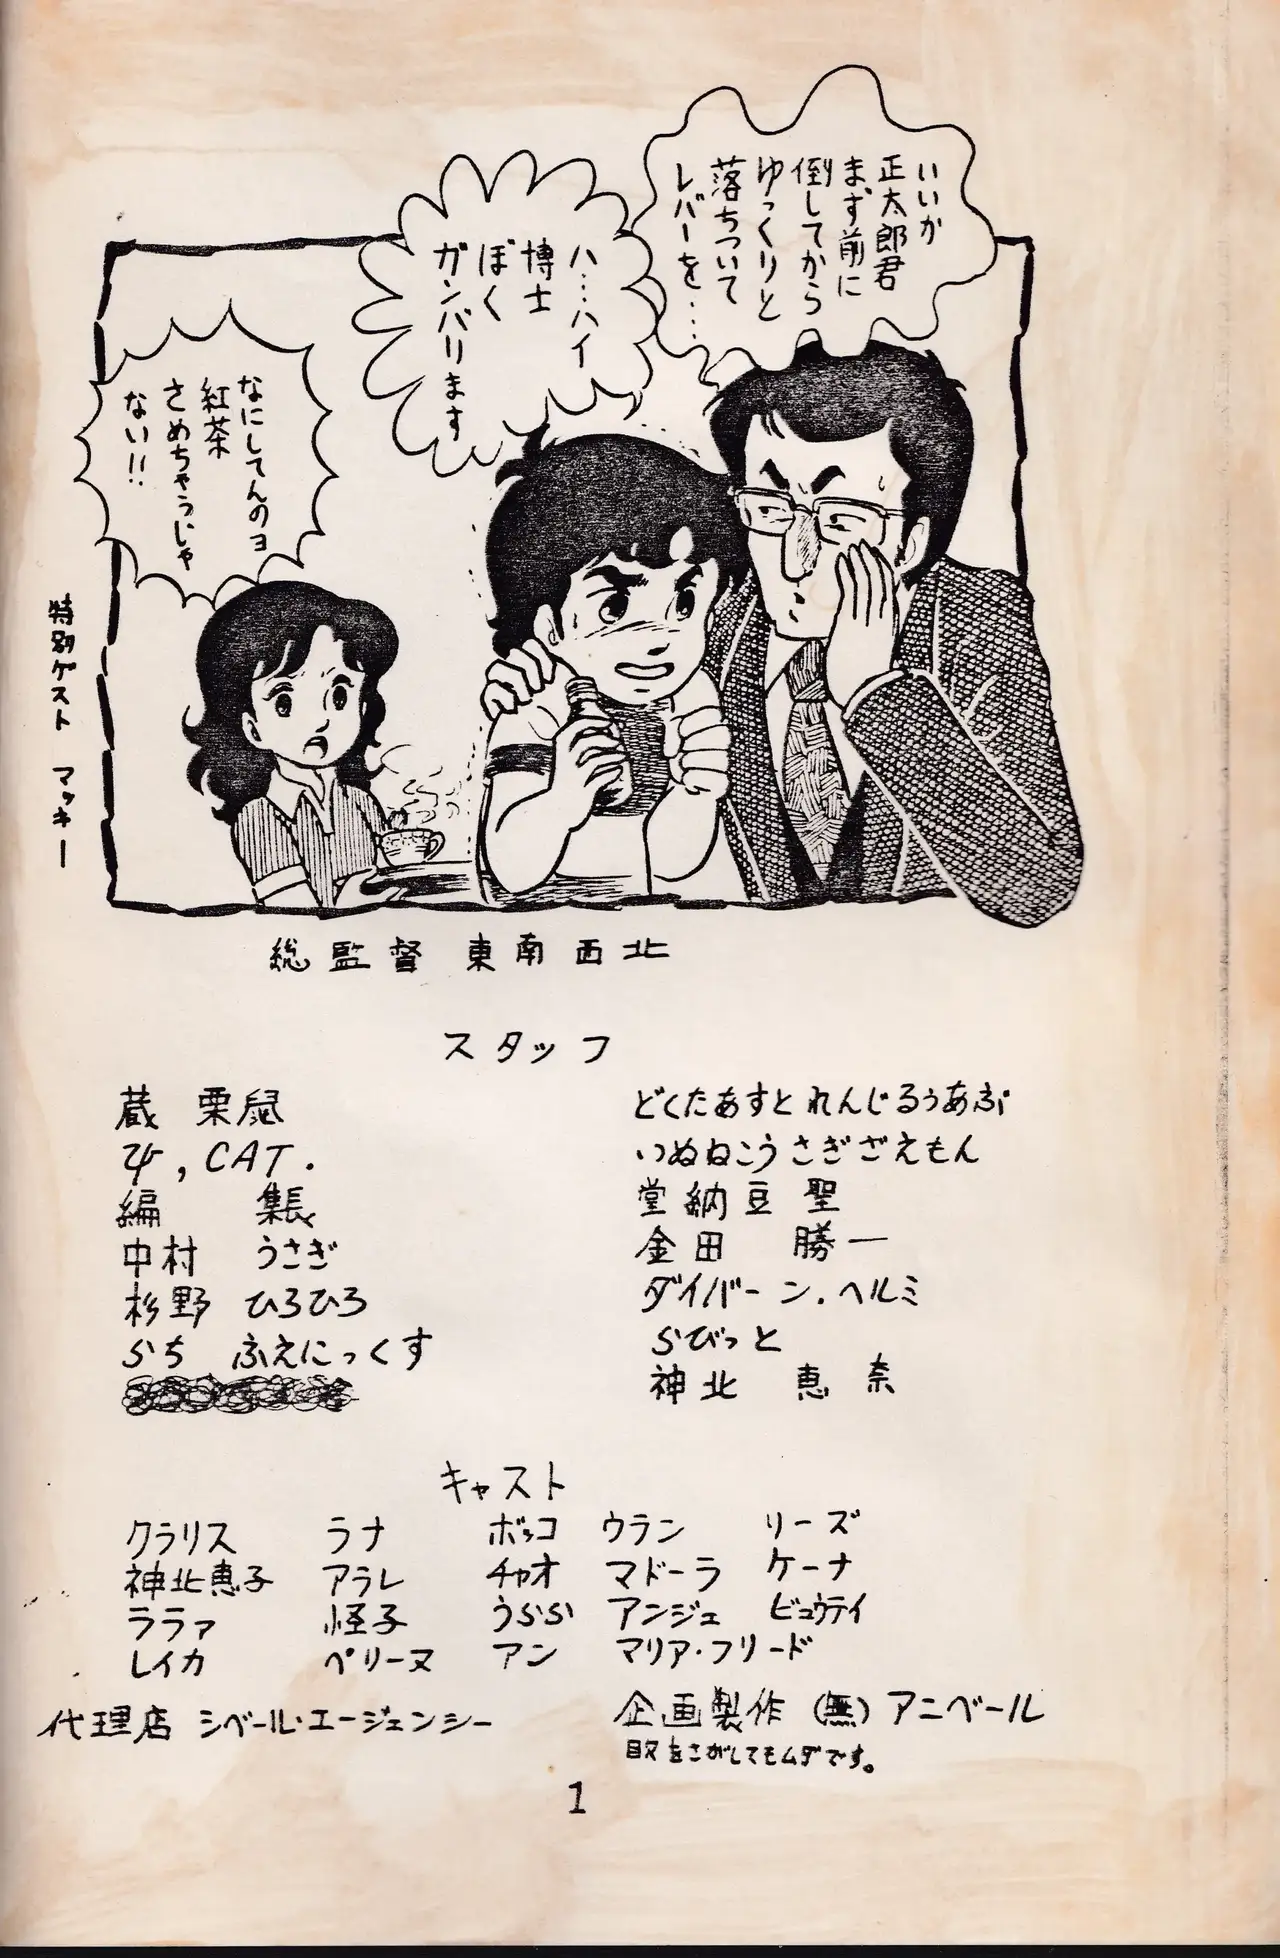 いいか
正太郎君
まず前に
倒してから
ゆっくりと
落ちついて
レバーを・・・
ハ…ハイ
博士
ぼく
ガンバリます
なにしてんのヨ
紅茶
さめちゃうじゃ
ない!!
特別ゲスト マッキー
総監督 東南西北
スタッフ
蔵 栗鼠
どくたあすとれんじるぅあぶ
, CAT.
いぬねこうさぎざえもん
編 集長
堂納豆聖
中村 うさぎ
金田 勝一
杉野 ひろひろ
ダイバーン.ヘルミ
らち ふえにっくす
らびっと
神北 恵奈
キャスト
クラリス ラナ ボッコ ウラン リーズ
神北恵子 アラレ チャオ マドーラ ケーナ
ララァ 怪子 うらら アンジェ ビュウティ
レイカ ペリーヌ アン マリア・フリード
代理店 シベール・エージェンシー
企画製作 (無) アニベール
目又をさがしてもムダです。
1